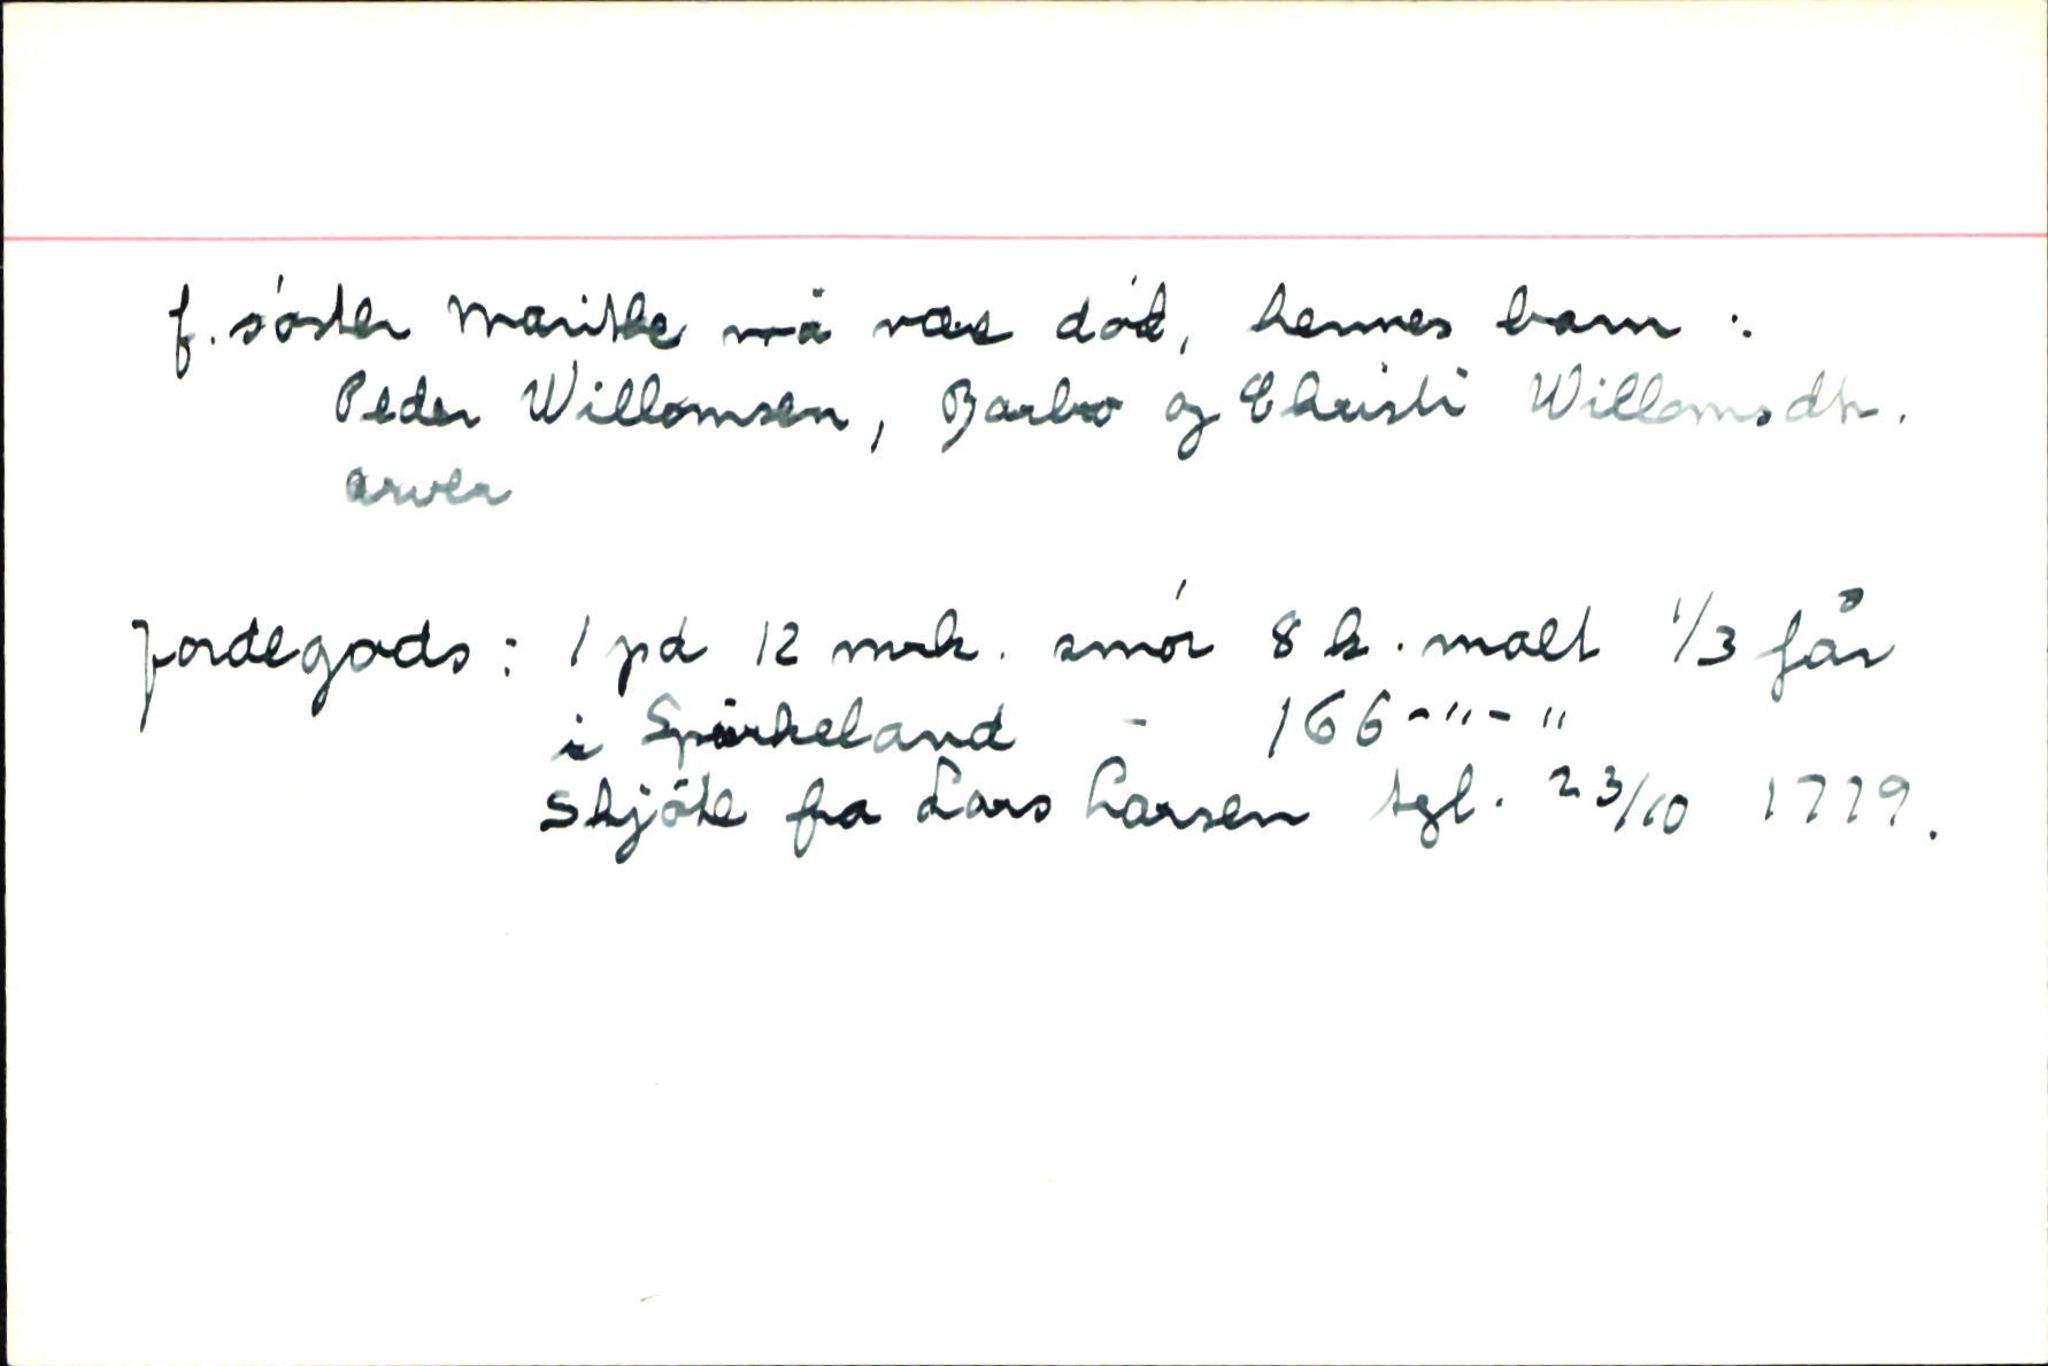 f. søster Marithe må være død, hennes barn :
Peder Willomsen, Barbro og Christi Willomsdtr.
arver
Jordegods : 1 pd 12 mrk. smør 8 k. malt 1/3 får
i Spirkeland - 166 - " - "
Skjøte fra Lars Larsen tgl. 23/10 1779.